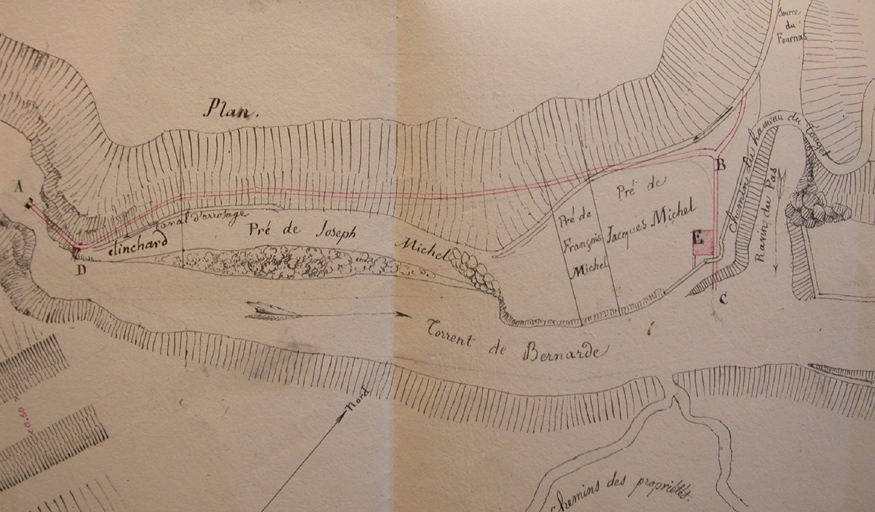 Source
du
Fournas
Plan.
Chemin du hameau du
A
B
Pré de
Jacques Michel
Pré de
François
Michel
Canal d'arrosage
Pré de Joseph
Michel
Clinchard
Ravin du Pas
D
E
C
Torrent de Bernarde
Nord
Chemins des propriétés.